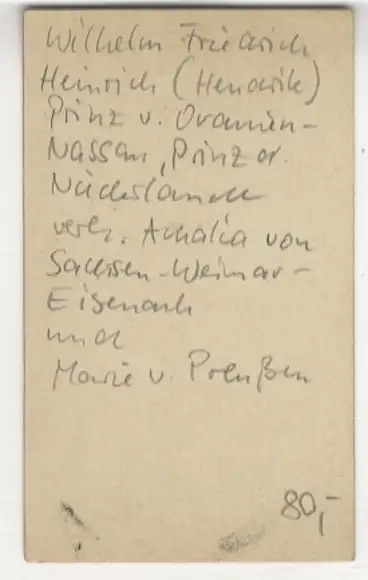 Wilhelm Friedrich
Heinrich (Hendrik)
Prinz v. Oranien-
Nassau, Prinz d.
Niederlande
verh. Amalia von
Sachsen-Weimar-
Eisenach
und
Marie v. Preußen
80,-